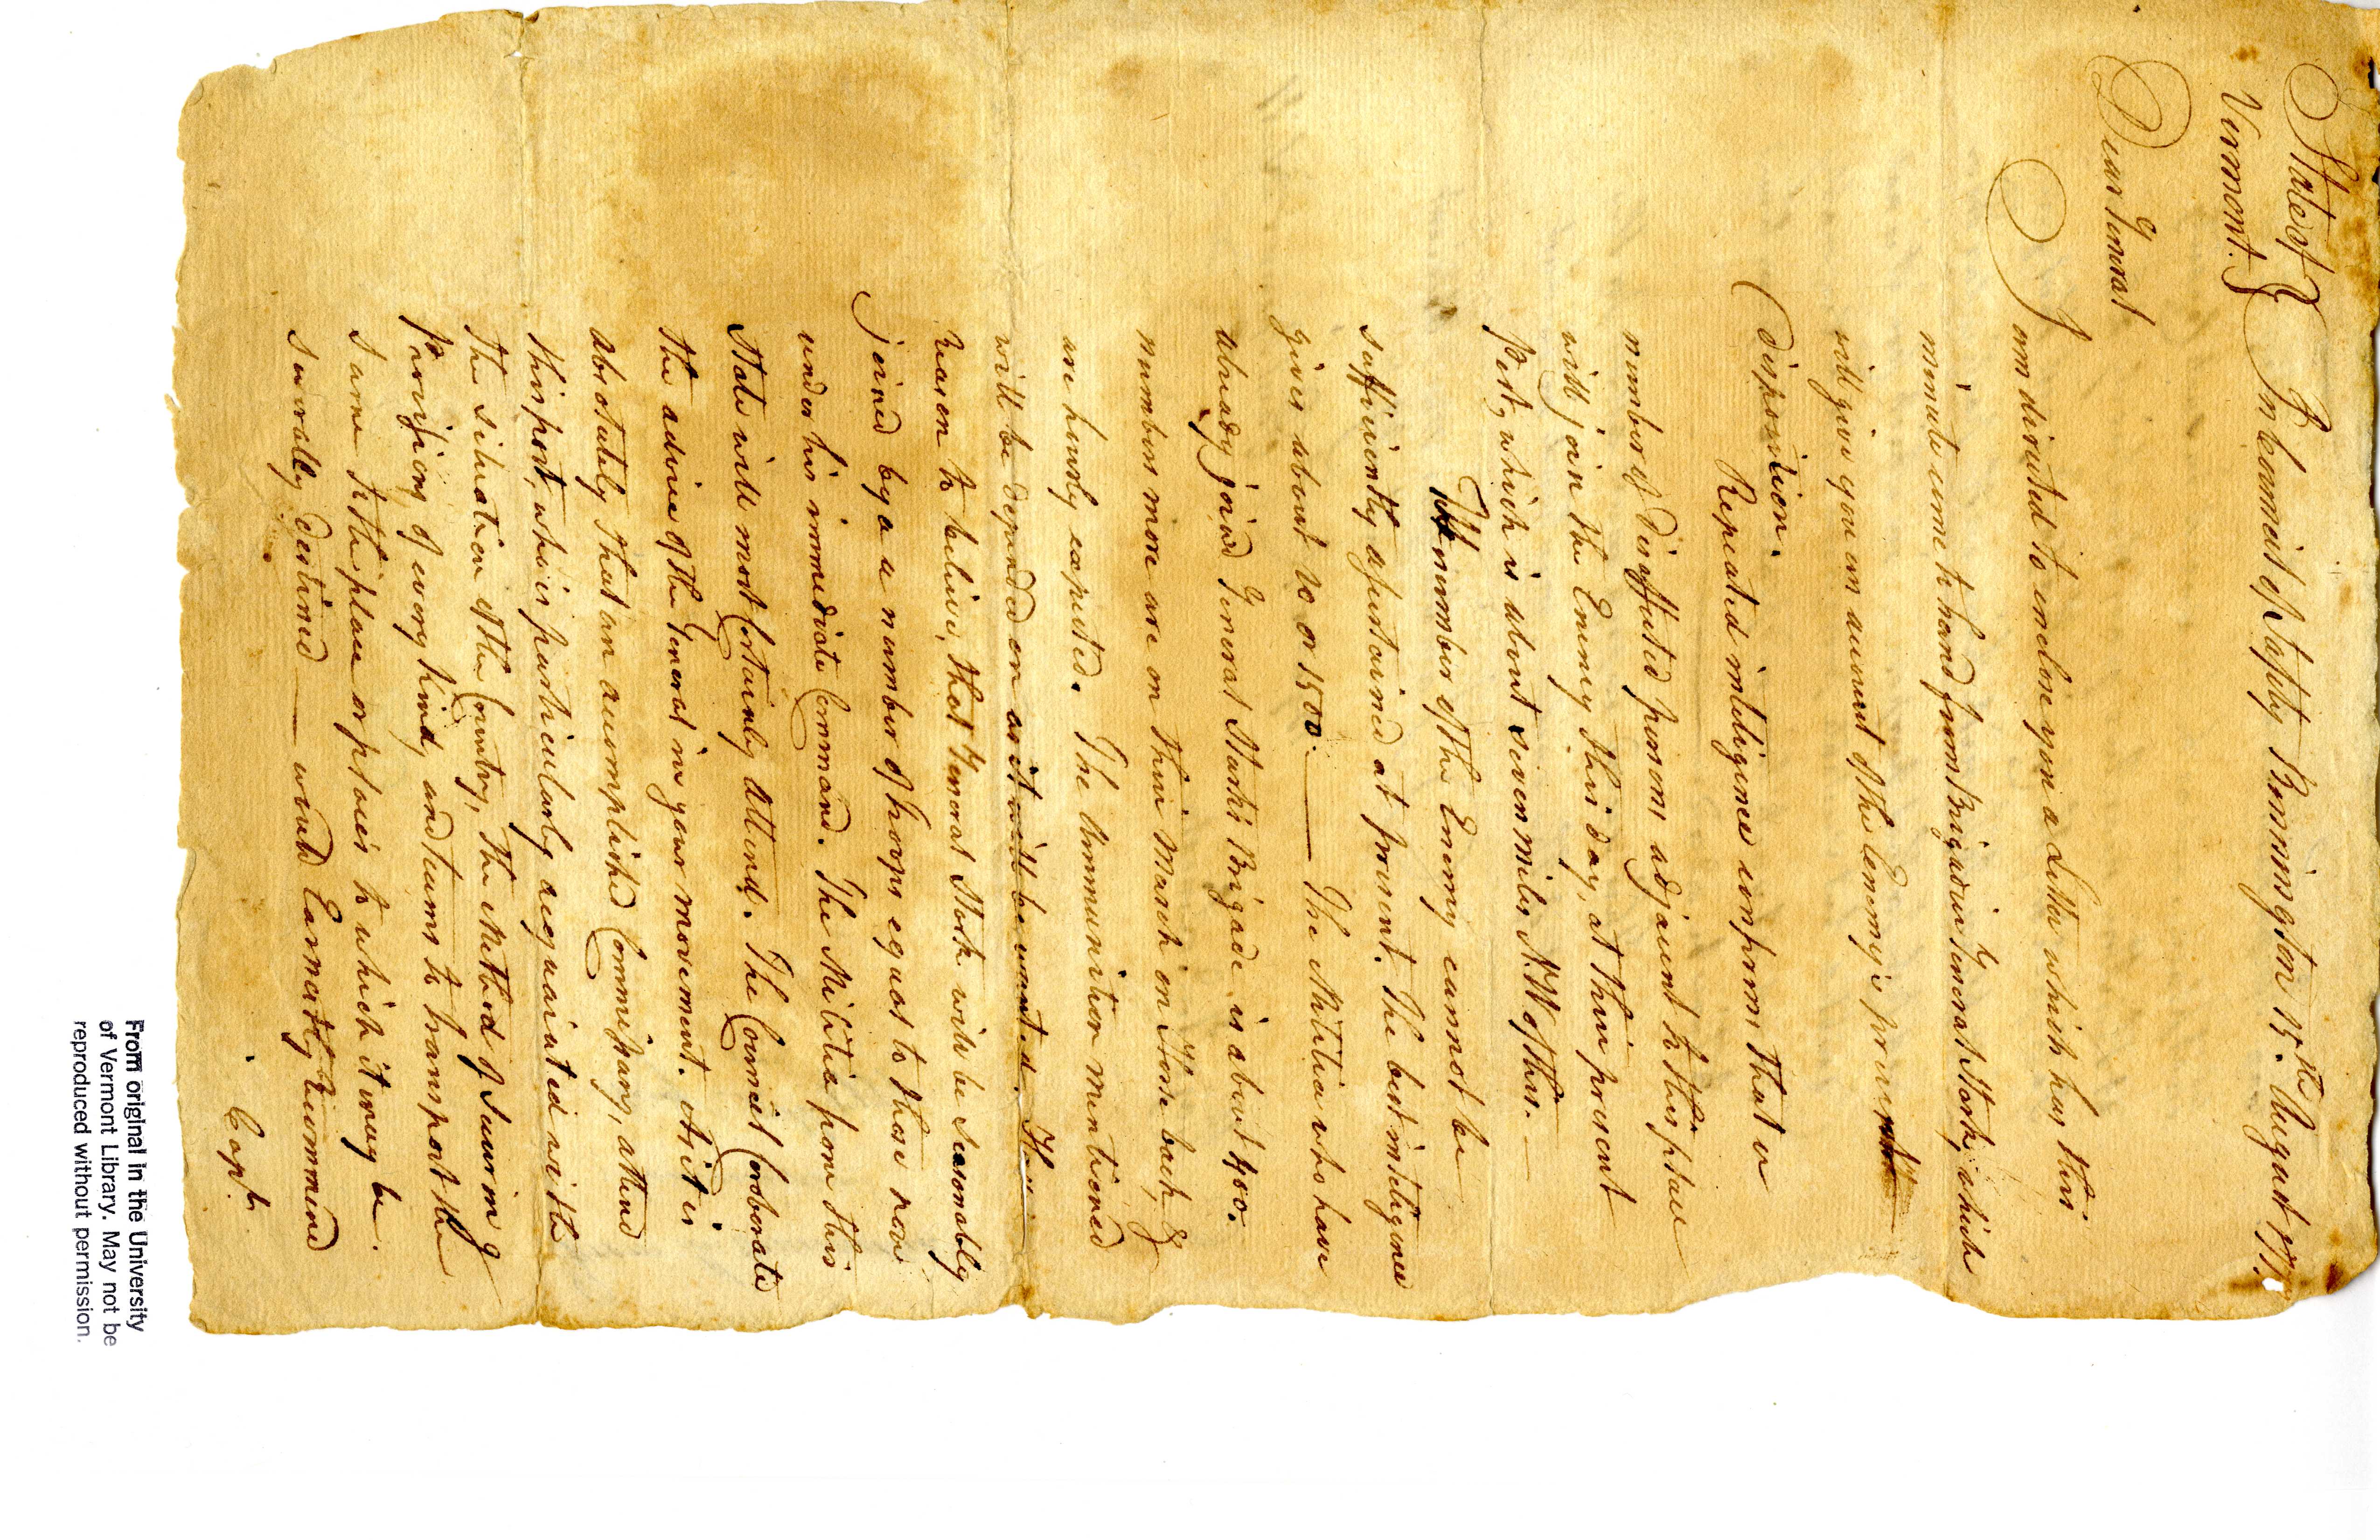 State of } In Council of Saffty Bennington 15th. August 1777.
Vermont. }
Dear General
I am directed to enclose you a Letter which has this
minute come to hand from Brigadier General Stark, which
will give you an account of the Enemy's present
disposition.
Repeated inteligences inform that a
number of Disaffected persons adjacent to this place
will join the Enemy this day, at their present
Post, which is about seven miles N.W. of this. —
The number of the Enemy cannot be
sufficiently assertained at present. The best inteligence
gives about 10 or 1500. — The Militia who have
already joined General Stark's Brigade, is about
numbers more are on their March on Horse back, &
are hourly expected. The Ammunition mentioned
will be depended on as it will be wanted.
reason to believe, that General Stark will be seasonably
joined by a a number of troops equal to those now
under his immediate Command. The Militia from this
State will most Certainly attend. The Council Coroborate
the advice of the General in your movement. As it is
absolutely that an accomplished Commissary, attend
this post, who is particularly acquainted with
the situation of the Country, the Method of securing
Provisions, of every kind, and teems to transport the
same to the place or places to which it may be
severally destined — would Earnestly recommend
Capt.
From original in the University
of Vermont Library. May not be
reproduced without permission.